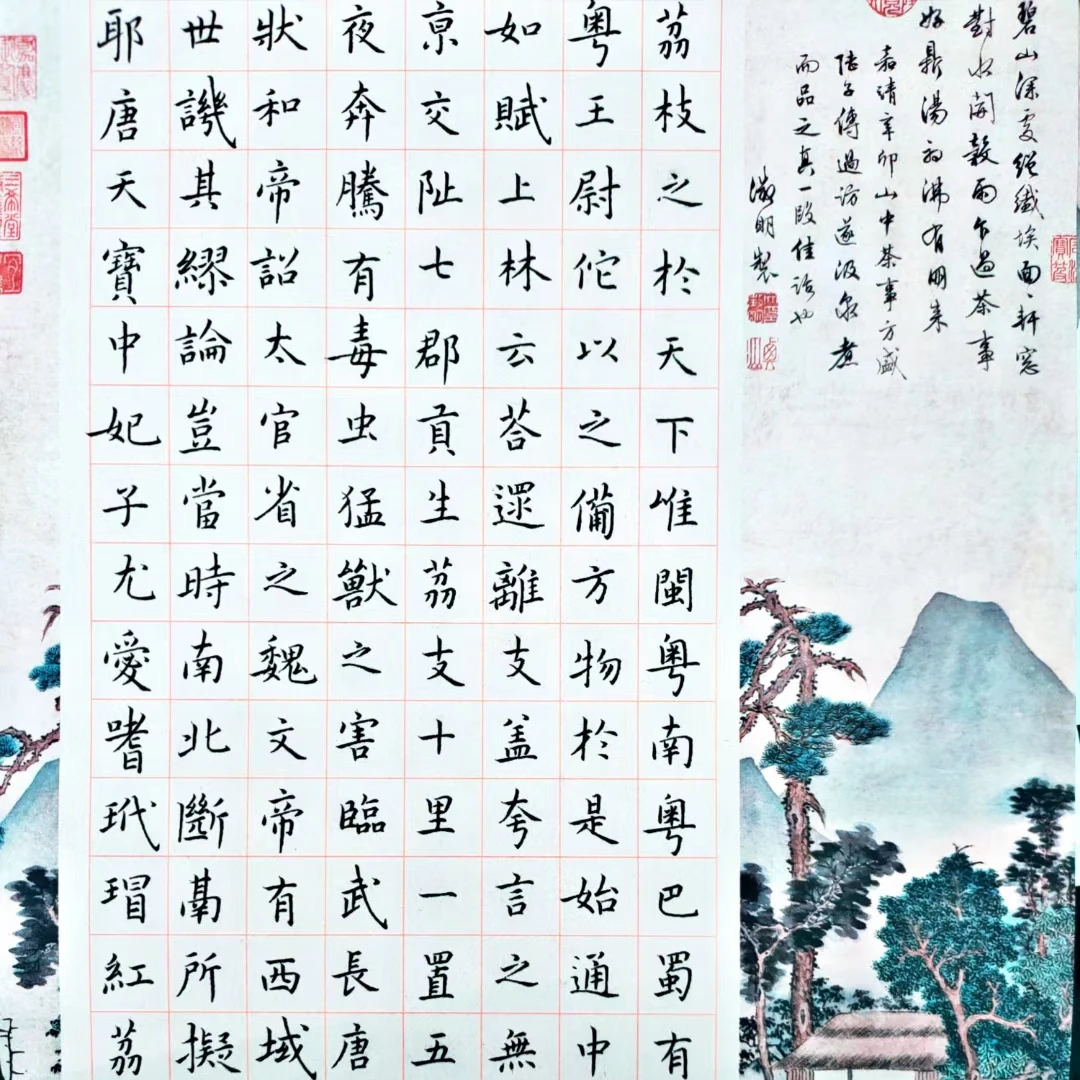 碧山深處絕纖埃面〻軒窓
對水開穀雨乍過茶事
好鼎湯初沸有朋来
嘉靖辛卯山中茶事方盛
陸子傳過訪遂汲泉煮
而品之真一段佳話也
徵明製
茘枝之於天下唯閩粵南粵巴蜀有
粵王尉佗以之備方物於是始通中
如賦上林云荅遝離支盖夸言之無
亰交阯七郡貢生茘支十里一置五
夜奔騰有毒虫猛獸之害臨武長唐
狀和帝詔太官省之魏文帝有西域
世譏其繆論豈當時南北斷鬲所擬
耶唐天寶中妃子尤愛嗜玳瑁紅茘